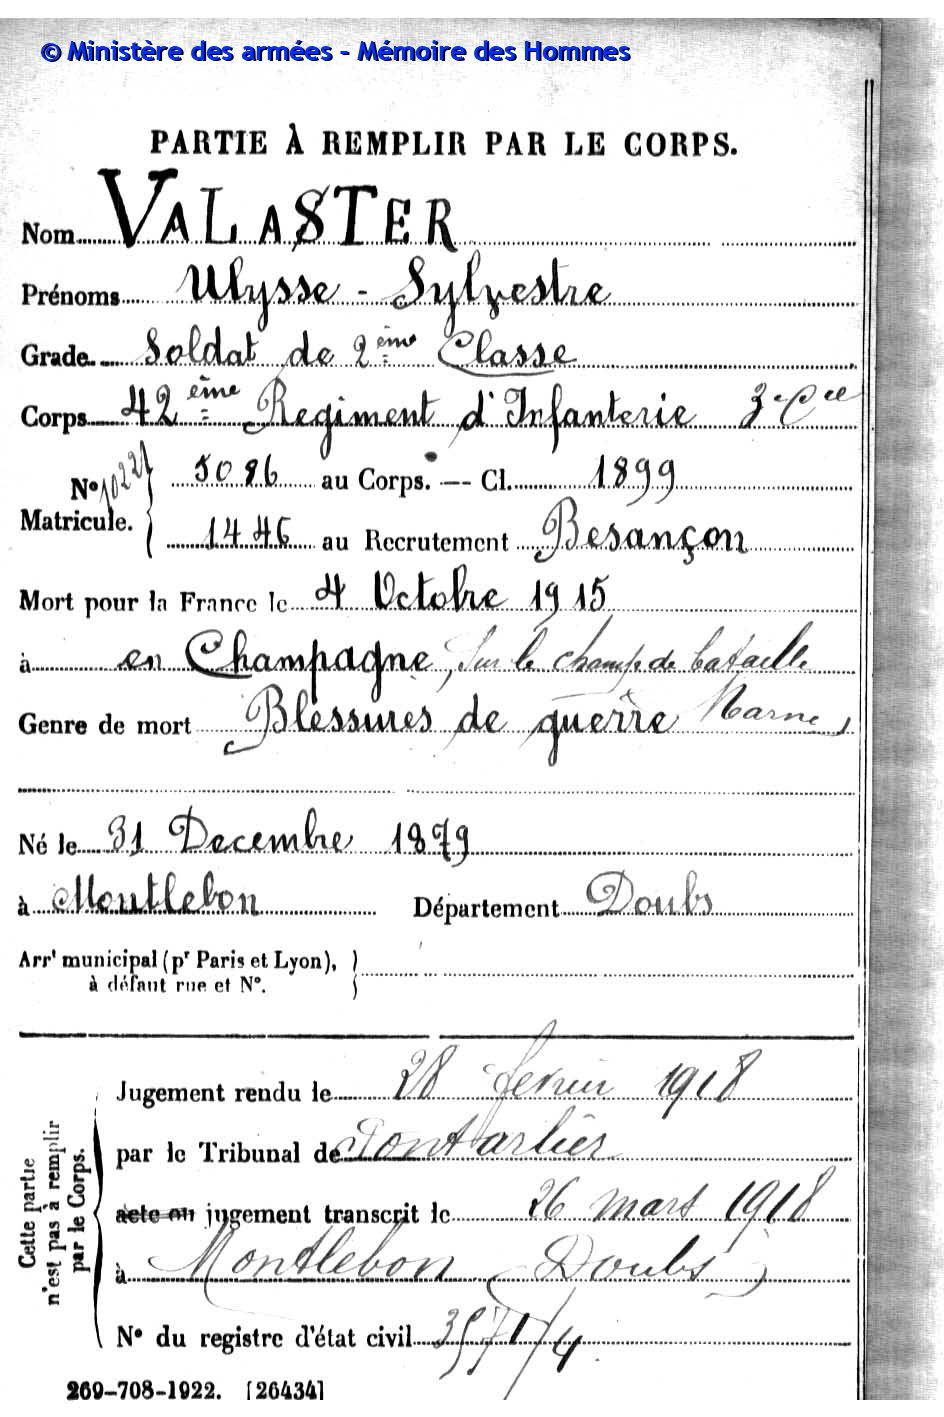 © Ministère des armées - Mémoire des Hommes
PARTIE À REMPLIR PAR LE CORPS.
Nom VALASTER
Prénoms Ulysse - Sylvestre
Grade Soldat de 2ème Classe
Corps 42ème Régiment d'Infanterie 3e Cie
10227 5086 au Corps. — Cl. 1899
N°
Matricule.
1446 au Recrutement Besançon
Mort pour la France le 4 Octobre 1915
à en Champagne, sur le champ de bataille
Genre de mort Blessures de guerre Marne
Né le 31 Decembre 1879
à Montlebon Département Doubs
Arrt municipal (pr Paris et Lyon),
à défaut rue et N°.
Jugement rendu le 28 fevrier 1918
par le Tribunal de Pontarlier
acte ou jugement transcrit le 26 mars 1918
à Montlebon (Doubs)
N° du registre d'état civil
Cette partie
n'est pas à remplir
par le Corps.
269-708-1922. [26434]